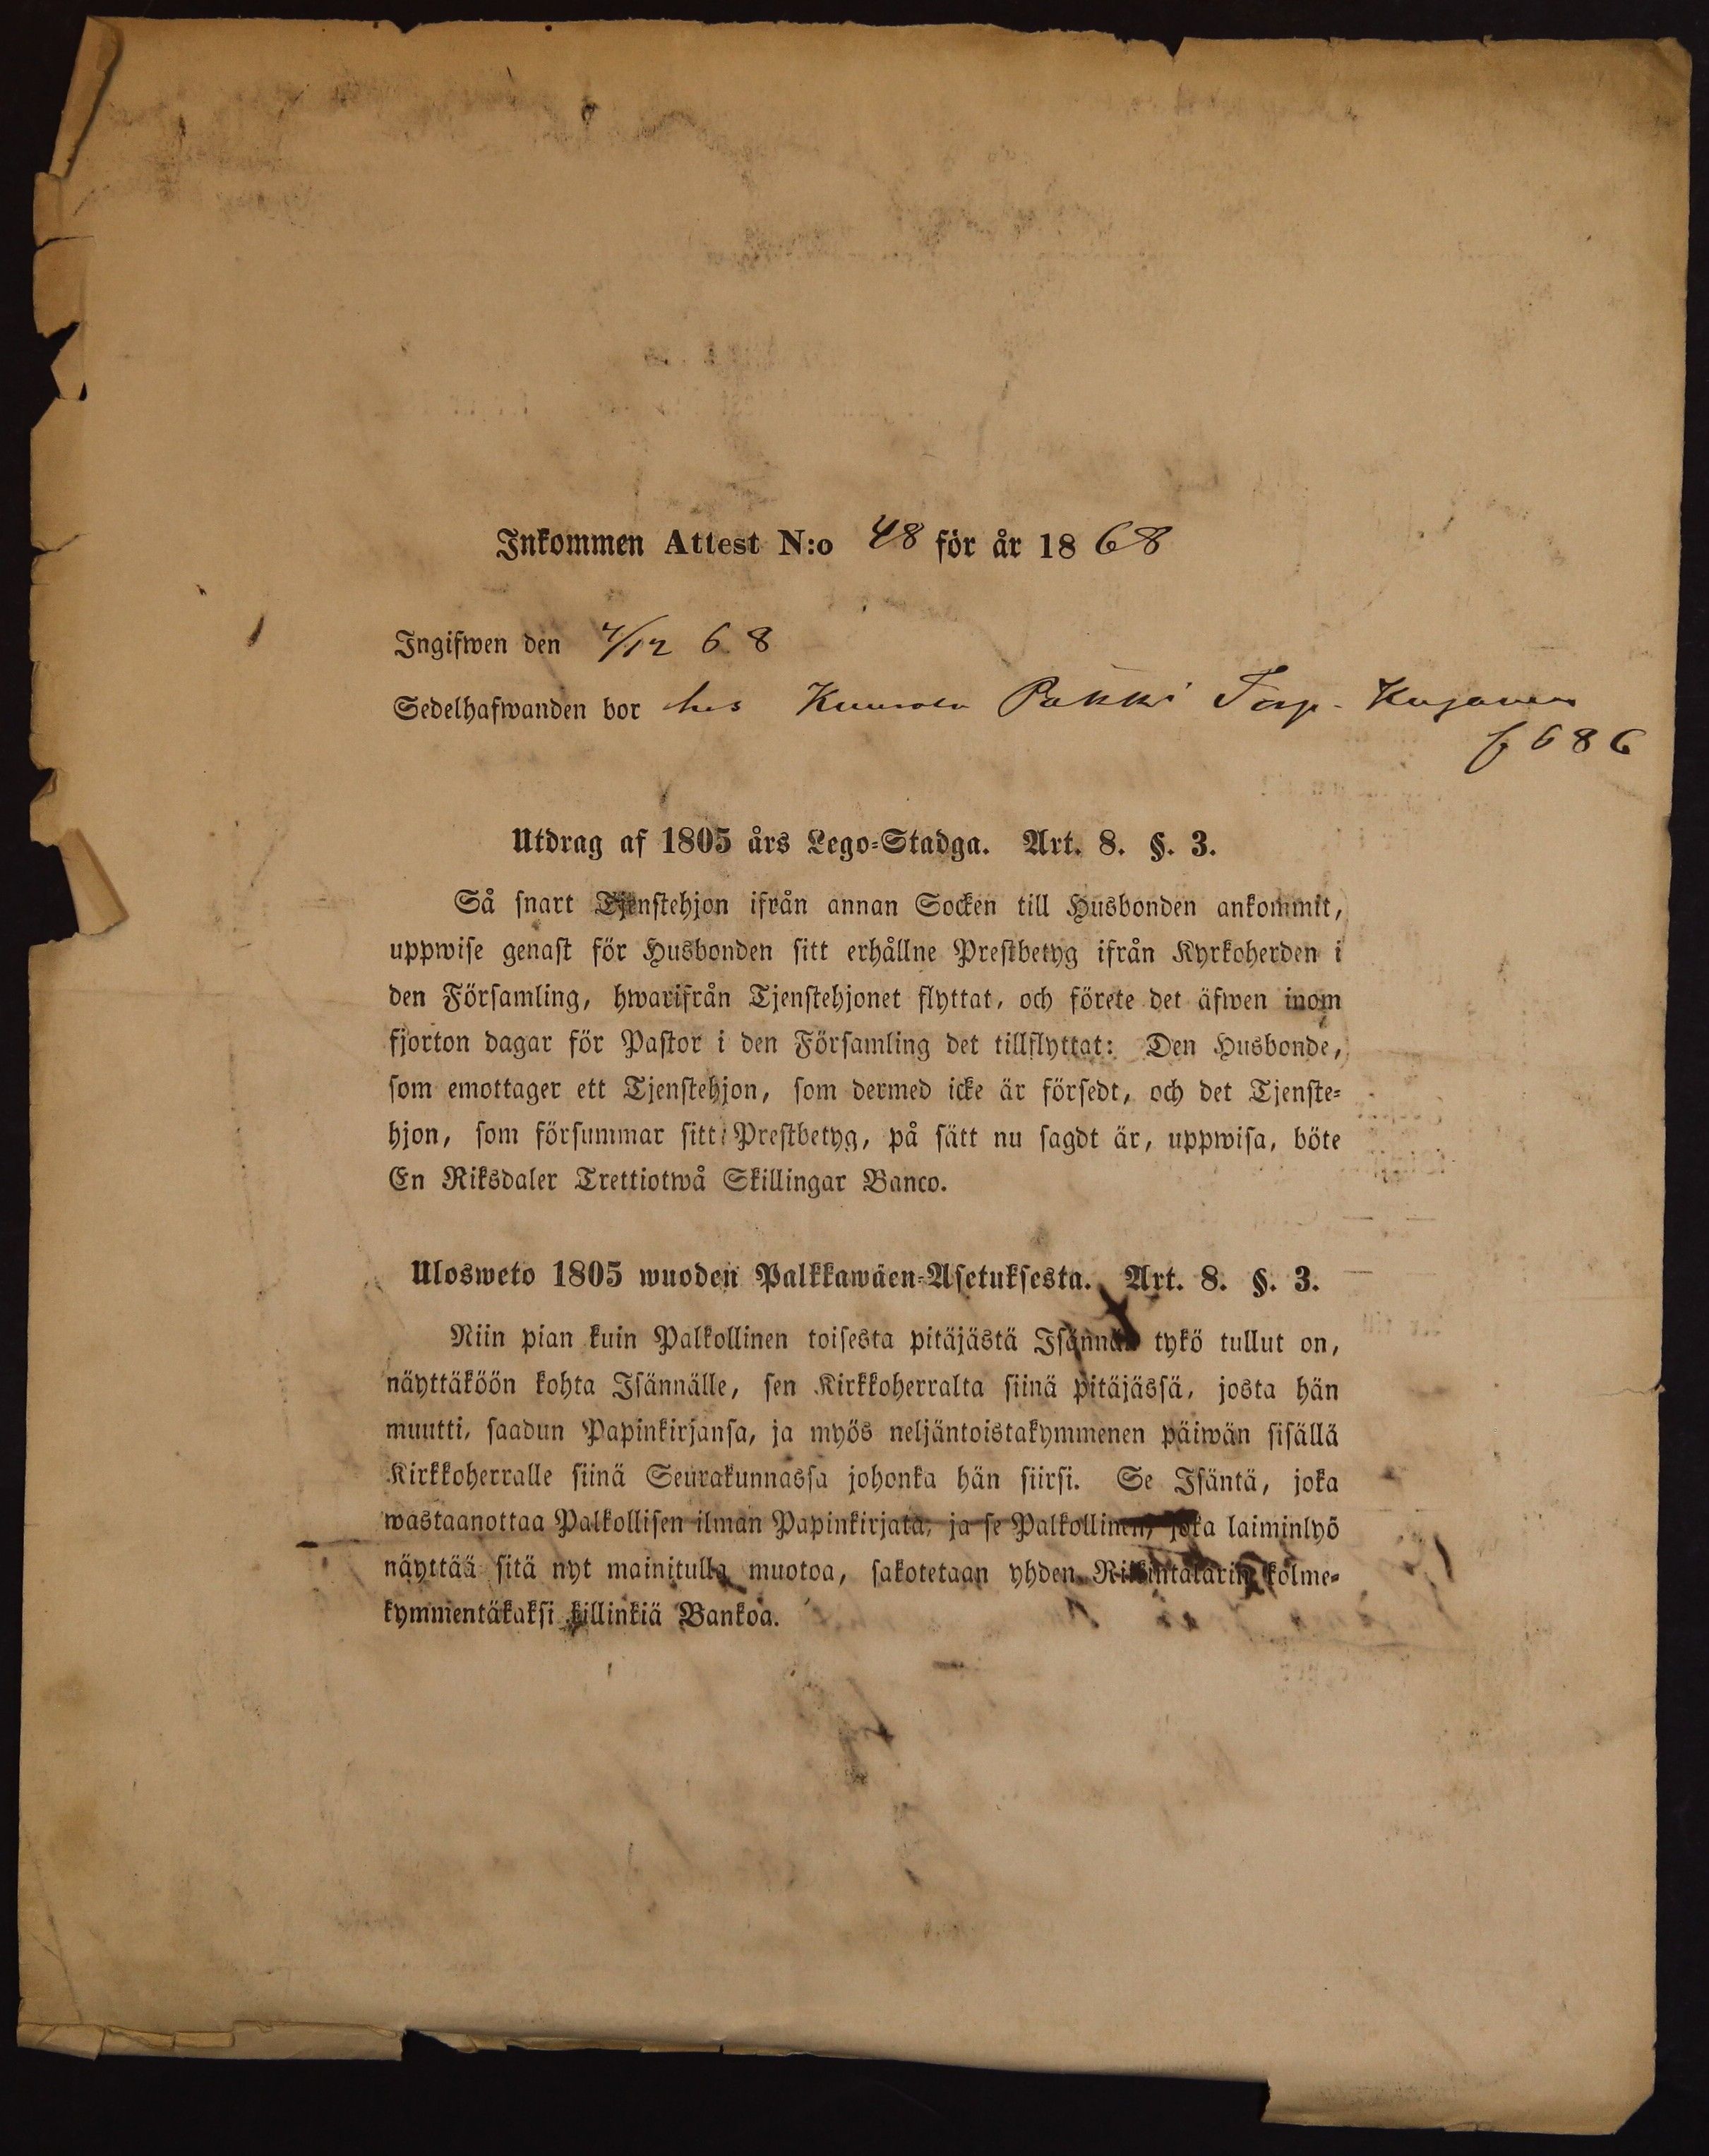 Inkommen Attest N:o 48 för år 1868
Ingifwen den 7/12 68
Sedelhafwanden bor hos Pakki Torp.
f 686
Utdrag af 1805 års Lego-Stadga. Art. 8. §. 3.
Så snart Tjenstehjon ifrån annan Socken till Husbonden ankommit,
uppwise genast för Husbonden sitt erhållne Prestbetyg ifrån Kyrkoherden i
den Församling, hwarifrån Tjenstehjonet flyttat, och förete det äfwen inom
fjorton dagar för Pastor i den Församling det tillflyttat: Den Husbonde,
som emottager ett Tjenstehjon, som dermed icke är försedt, och det Tjenste-
hjon, som försummar sitt Prestbetyg, på sätt nu sagdt är, uppwisa, böte
En Riksdaler Trettiotwå Skillingar Banco.
Ulosweto 1805 wuoden Palkkawäen-Asetuksesta. Art. 8. §. 3.
Niin pian kuin Palkollinen toisesta pitäjästä Isännän tykö tullut on,
näyttäköön kohta Isännälle, sen Kirkkoherralta siinä pitäjässä, josta hän
muutti, saadun Papinkirjansa, ja myös neljäntoistakymmenen päiwän sisällä
Kirkkoherralle siinä Seurakunnassa johonka hän siirsi. Se Isäntä, joka
wastaanottaa Palkollisen ilman Papinkirjata, ja se Palkollinen, joka laiminlyö
näyttää sitä nyt mainitulla muotoa, sakotetaan yhden Riikintalarin kolme-
kymmentäkaksi killinkiä Bankoa.